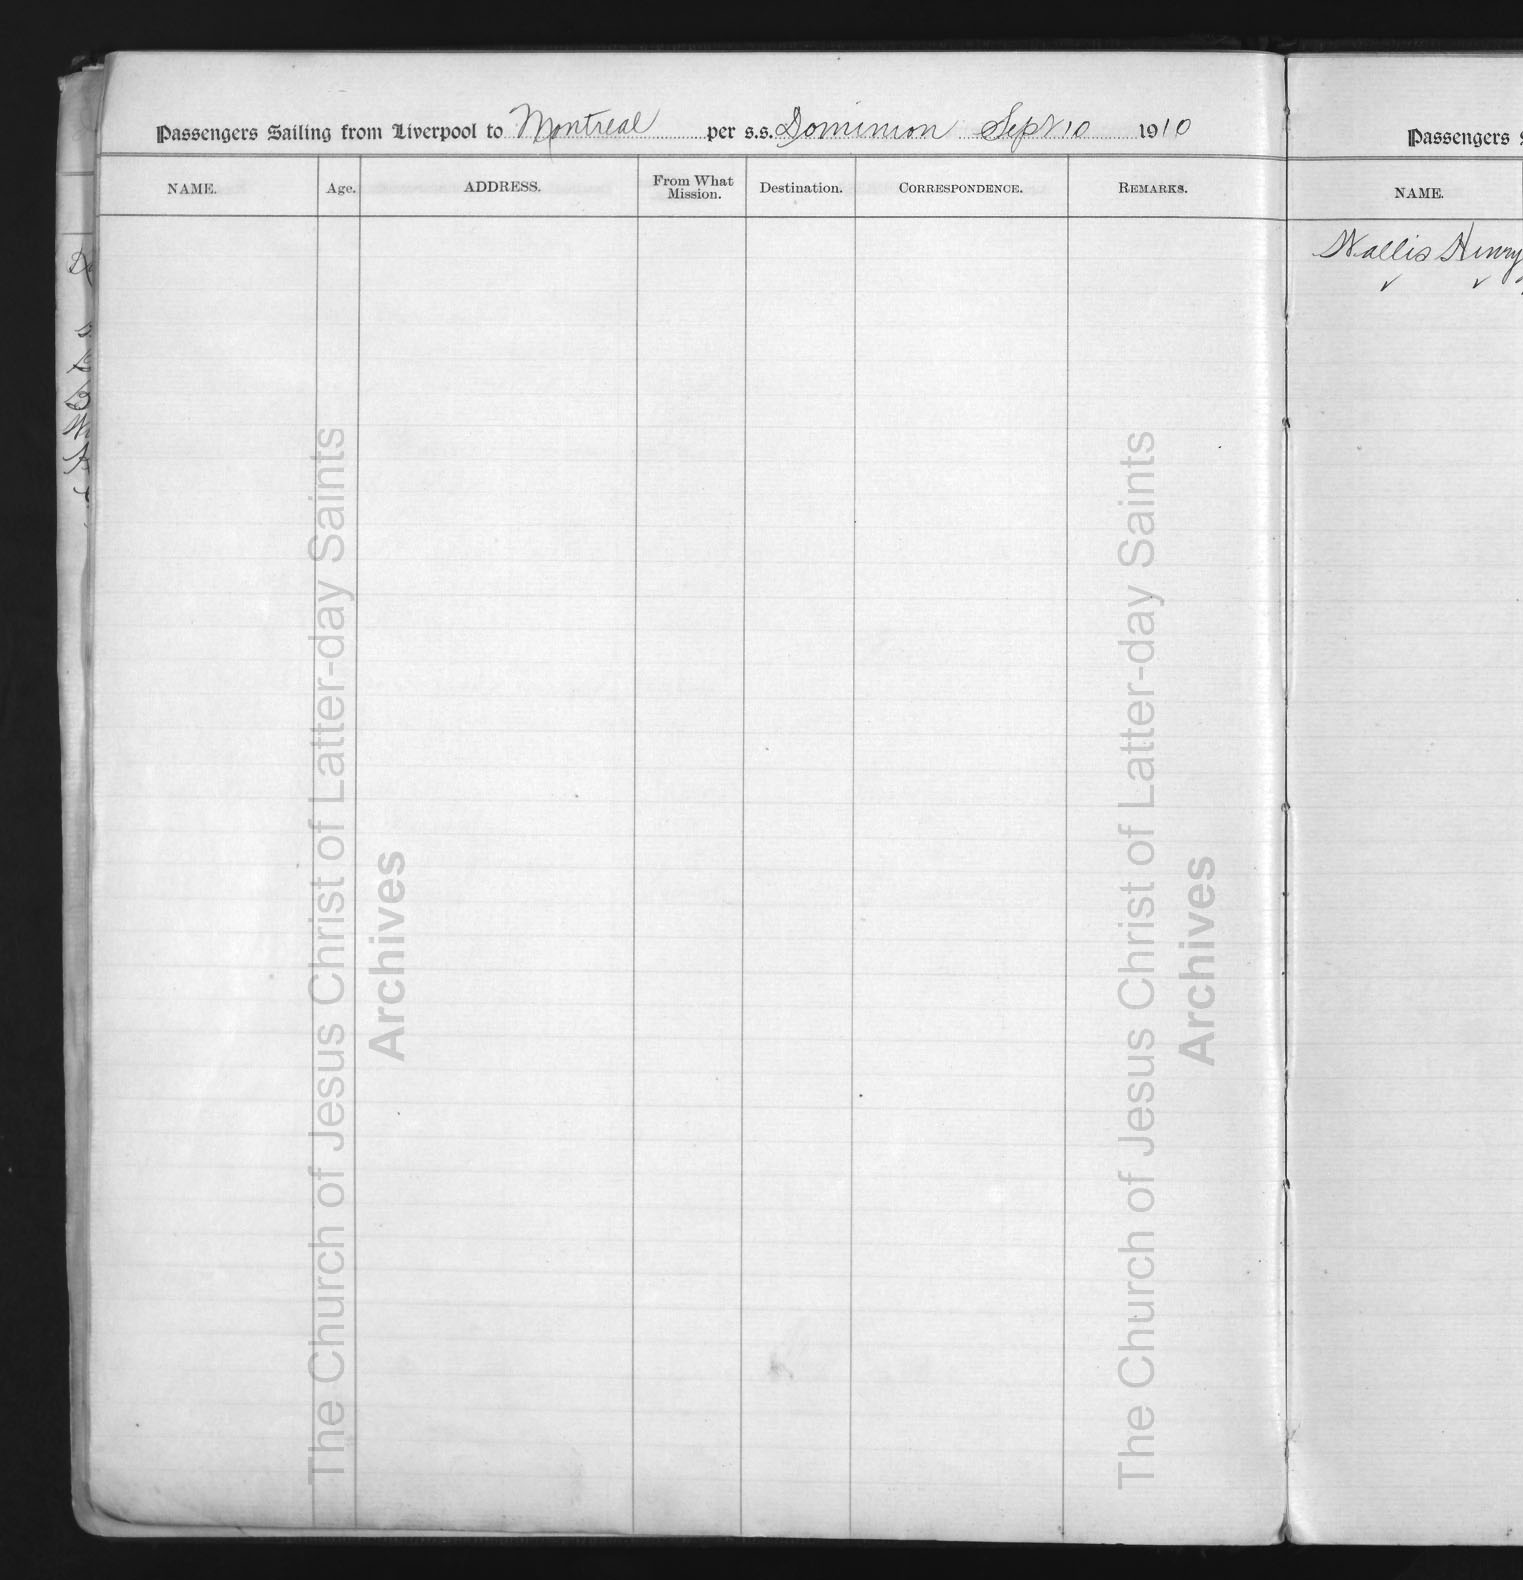 Passengers Sailing from Liverpool to Montreal per s.s. Dominion Sept 10 1910
NAME. Age. ADDRESS. From What Mission. Destination. CORRESPONDENCE. REMARKS.
Passengers
NAME.
Wallis Henry
The Church of Jesus Christ of Latter-day Saints
Archives
The Church of Jesus Christ of Latter-day Saints
Archives